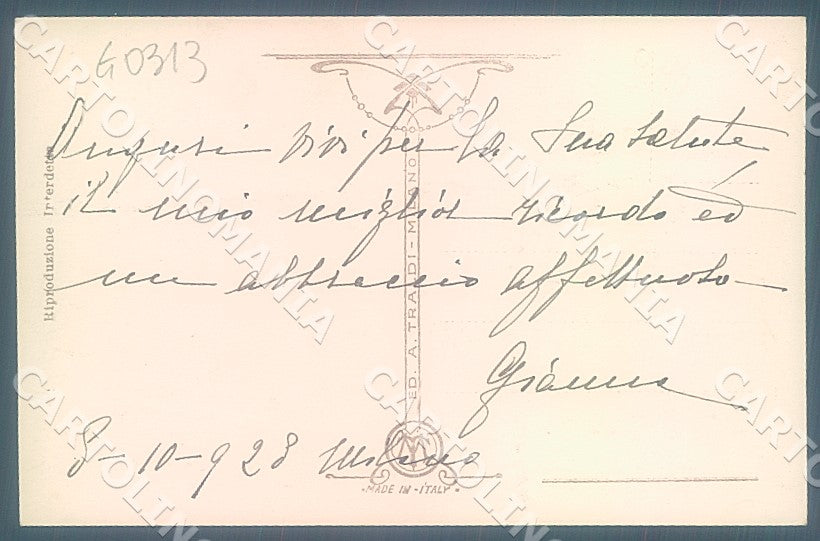 G0313
Auguri vivi per la Sua salute
il mio miglior ricordo ed
un abbraccio affettuoso
Gianna
8-10-928 Milano
Riproduzione Interdetta
ED. A. TRALDI - MILANO
-MADE IN-ITALY-
CARTOLINOMANIA
CARTOLINOMANIA
CARTOLINOMANIA
CARTOLINOMANIA
CARTOLINOMANIA
CARTOLINOMANIA